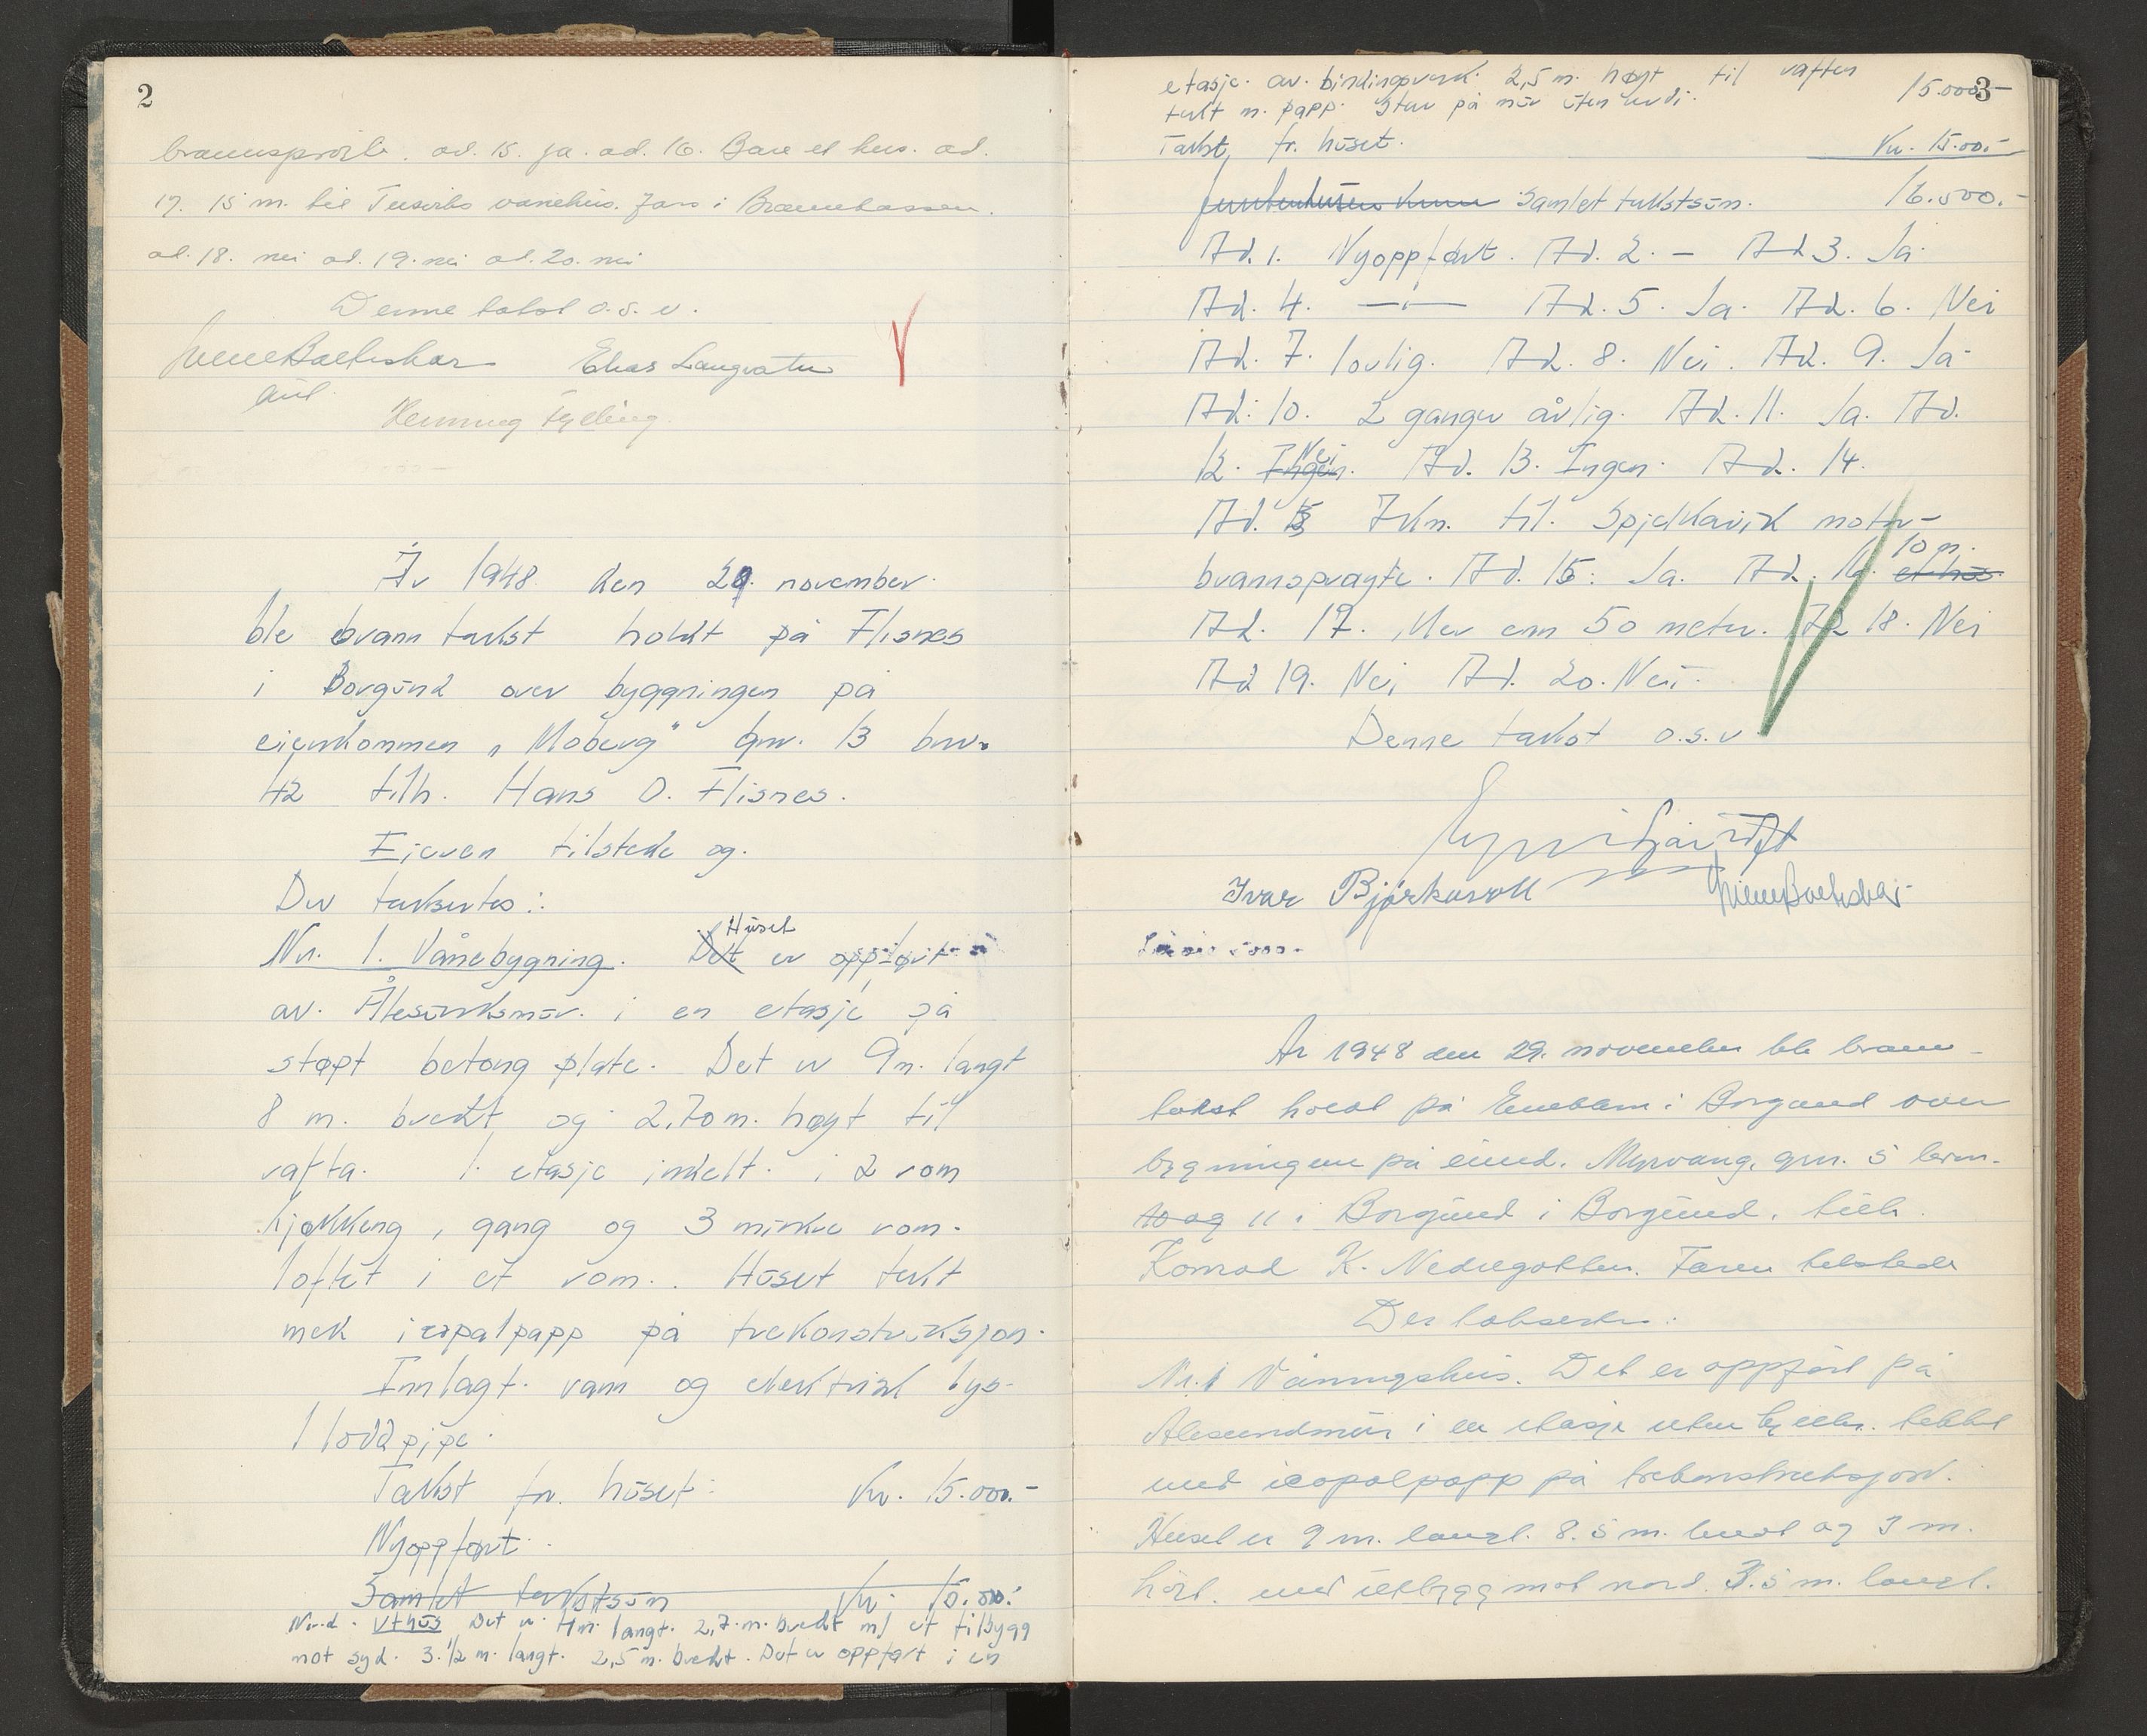 2
brannsprøite. ad. 15. ja. ad. 16. Bare et hus. ad.
17. 15 m. til vånehus. i Brannkassen.
ad. 18. nei ad. 19. nei ad. 20. nei
Denne takst o.s.v.
Elias Langvatn
Henning
År 1948 den 29. november
ble brann takst holdt på Flisnes
i Borgund over byggningen på
eienkommen „Moberg" gnr. 13 bnr.
42 tilh. Hans O. Flisnes.
Eieren tilstede og.
Der taksertes:
Huset
Nr. 1. Vånebygning. Det er oppført
av. Ålesundsmur. i en etasje på
støpt betong plate. Det er 9 m. langt
8 m. bredt og 2,70 m. høyt til
rafta. 1. etasje innelt. i 2 rom
kjøkkeng, gang og 3 mindre rom.
loftet i et rom. Huset tekt
med icopalpapp på trekonstruksjon.
Innlagt vann og elektrisk lys.
1 lodd pipe.
Takst for huset: Kr. 15.000.-
Nyoppført.
Samlet takstsum Kr. 15.000.
Nr. 2. Uthus Det er 4 m. langt. 2,7 m. bredt m/ et tilbygg
mot syd. 3.1/2 m. langt. 2,5 m. bredt. Det er oppført i en
3
etasje. av. bindingsverk. 2,5 m. høyt til raften
tekt m. papp. Står på mur uten verdi. 15.000.-
Takst for huset. Kr. 15.00.-
Samlet takstsum. 16.500.-
Ad. 1. Nyoppført. Ad. 2. - Ad 3. Ja
Ad. 4. — Ad. 5. Ja. Ad. 6. Nei
Ad. 7. lovlig. Ad. 8. Nei. Ad. 9. Ja
Ad. 10. 2 ganger årlig. Ad. 11. Ja. Ad.
12. Ingen. Nei Ad. 13. Ingen. Ad. 14.
Ad. 7 km. til Spjelkavik motor-
brannsprøyte. Ad. 15: Ja. Ad. 16. et hus. 10 m.
Ad. 17. Mer enn 50 meter. Ad 18. Nei
Ad 19. Nei, Ad. 20. Nei.
Denne takst o.s.v.
Ivar Bjørkavoll
År 1948 den 29. november ble brann-
takst holdt på i Borgund over
bygningene på eiend. Myrvang, gnr. 5 brnr.
10 og 11 i Borgund i Borgund. tilh.
Konrad K. Nedregotten. tilstede
Der taksertes:
Nr. 1 Våningshus. Det er oppført på
Ålesundmur i en etasje uten kjeller. tekket
med icopalpapp på trekonstruksjon.
Huset er 9 m. langt. 8.5 m. bredt og 3 m.
høit. med utbygg mot nord. 3.5 m. langt.